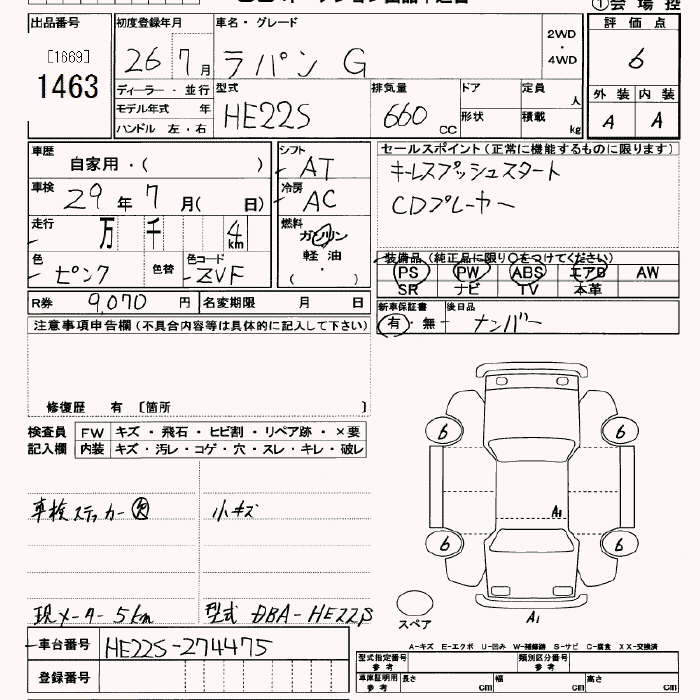 ①会場控
出品番号
[1669]
1463
初度登録年月
26 7月
車名・グレード
ラパン G
2WD
・
4WD
評価点
6
外装 内装
A A
ディーラー・並行
モデル年式 年
ハンドル 左・右
型式
HE22S
排気量
660 CC
ドア
形状
定員 人
積載 kg
車歴
自家用・( )
シフト
AT
車検
29年7月( 日)
冷房
AC
走行
万 千 4 km
燃料
ガソリン
軽油
( )
色
ピンク
色替
色コード
ZVF
R券 9,070 円
名変期限 月 日
セールスポイント(正常に機能するものに限ります)
キーレスプッシュスタート
CDプレーヤー
装備品(純正品に限り○をつけてください)
PS PW ABS エアB AW
SR ナビ TV 本革
新車保証書
有・無
後日品
ナンバー
注意事項申告欄(不具合内容等は具体的に記入して下さい)
修復歴 有 [箇所 ]
検査員
記入欄
FW キズ・飛石・ヒビ割・リペア跡・×要
内装 キズ・汚レ・コゲ・穴・スレ・キレ・破レ
車検ステッカー
小キズ
現メーター 5km
型式 DBA-HE22S
6 6
A1
6 6
スペア
A1
車台番号 HE22S-274475
登録番号
A-キズ E-エクボ U-凹み W-補修跡 S-サビ C-腐食 XX-交換済
型式指定番号
参考
類別区分番号
参考
車庫証明用
参考
長さ cm
幅 cm
高さ cm